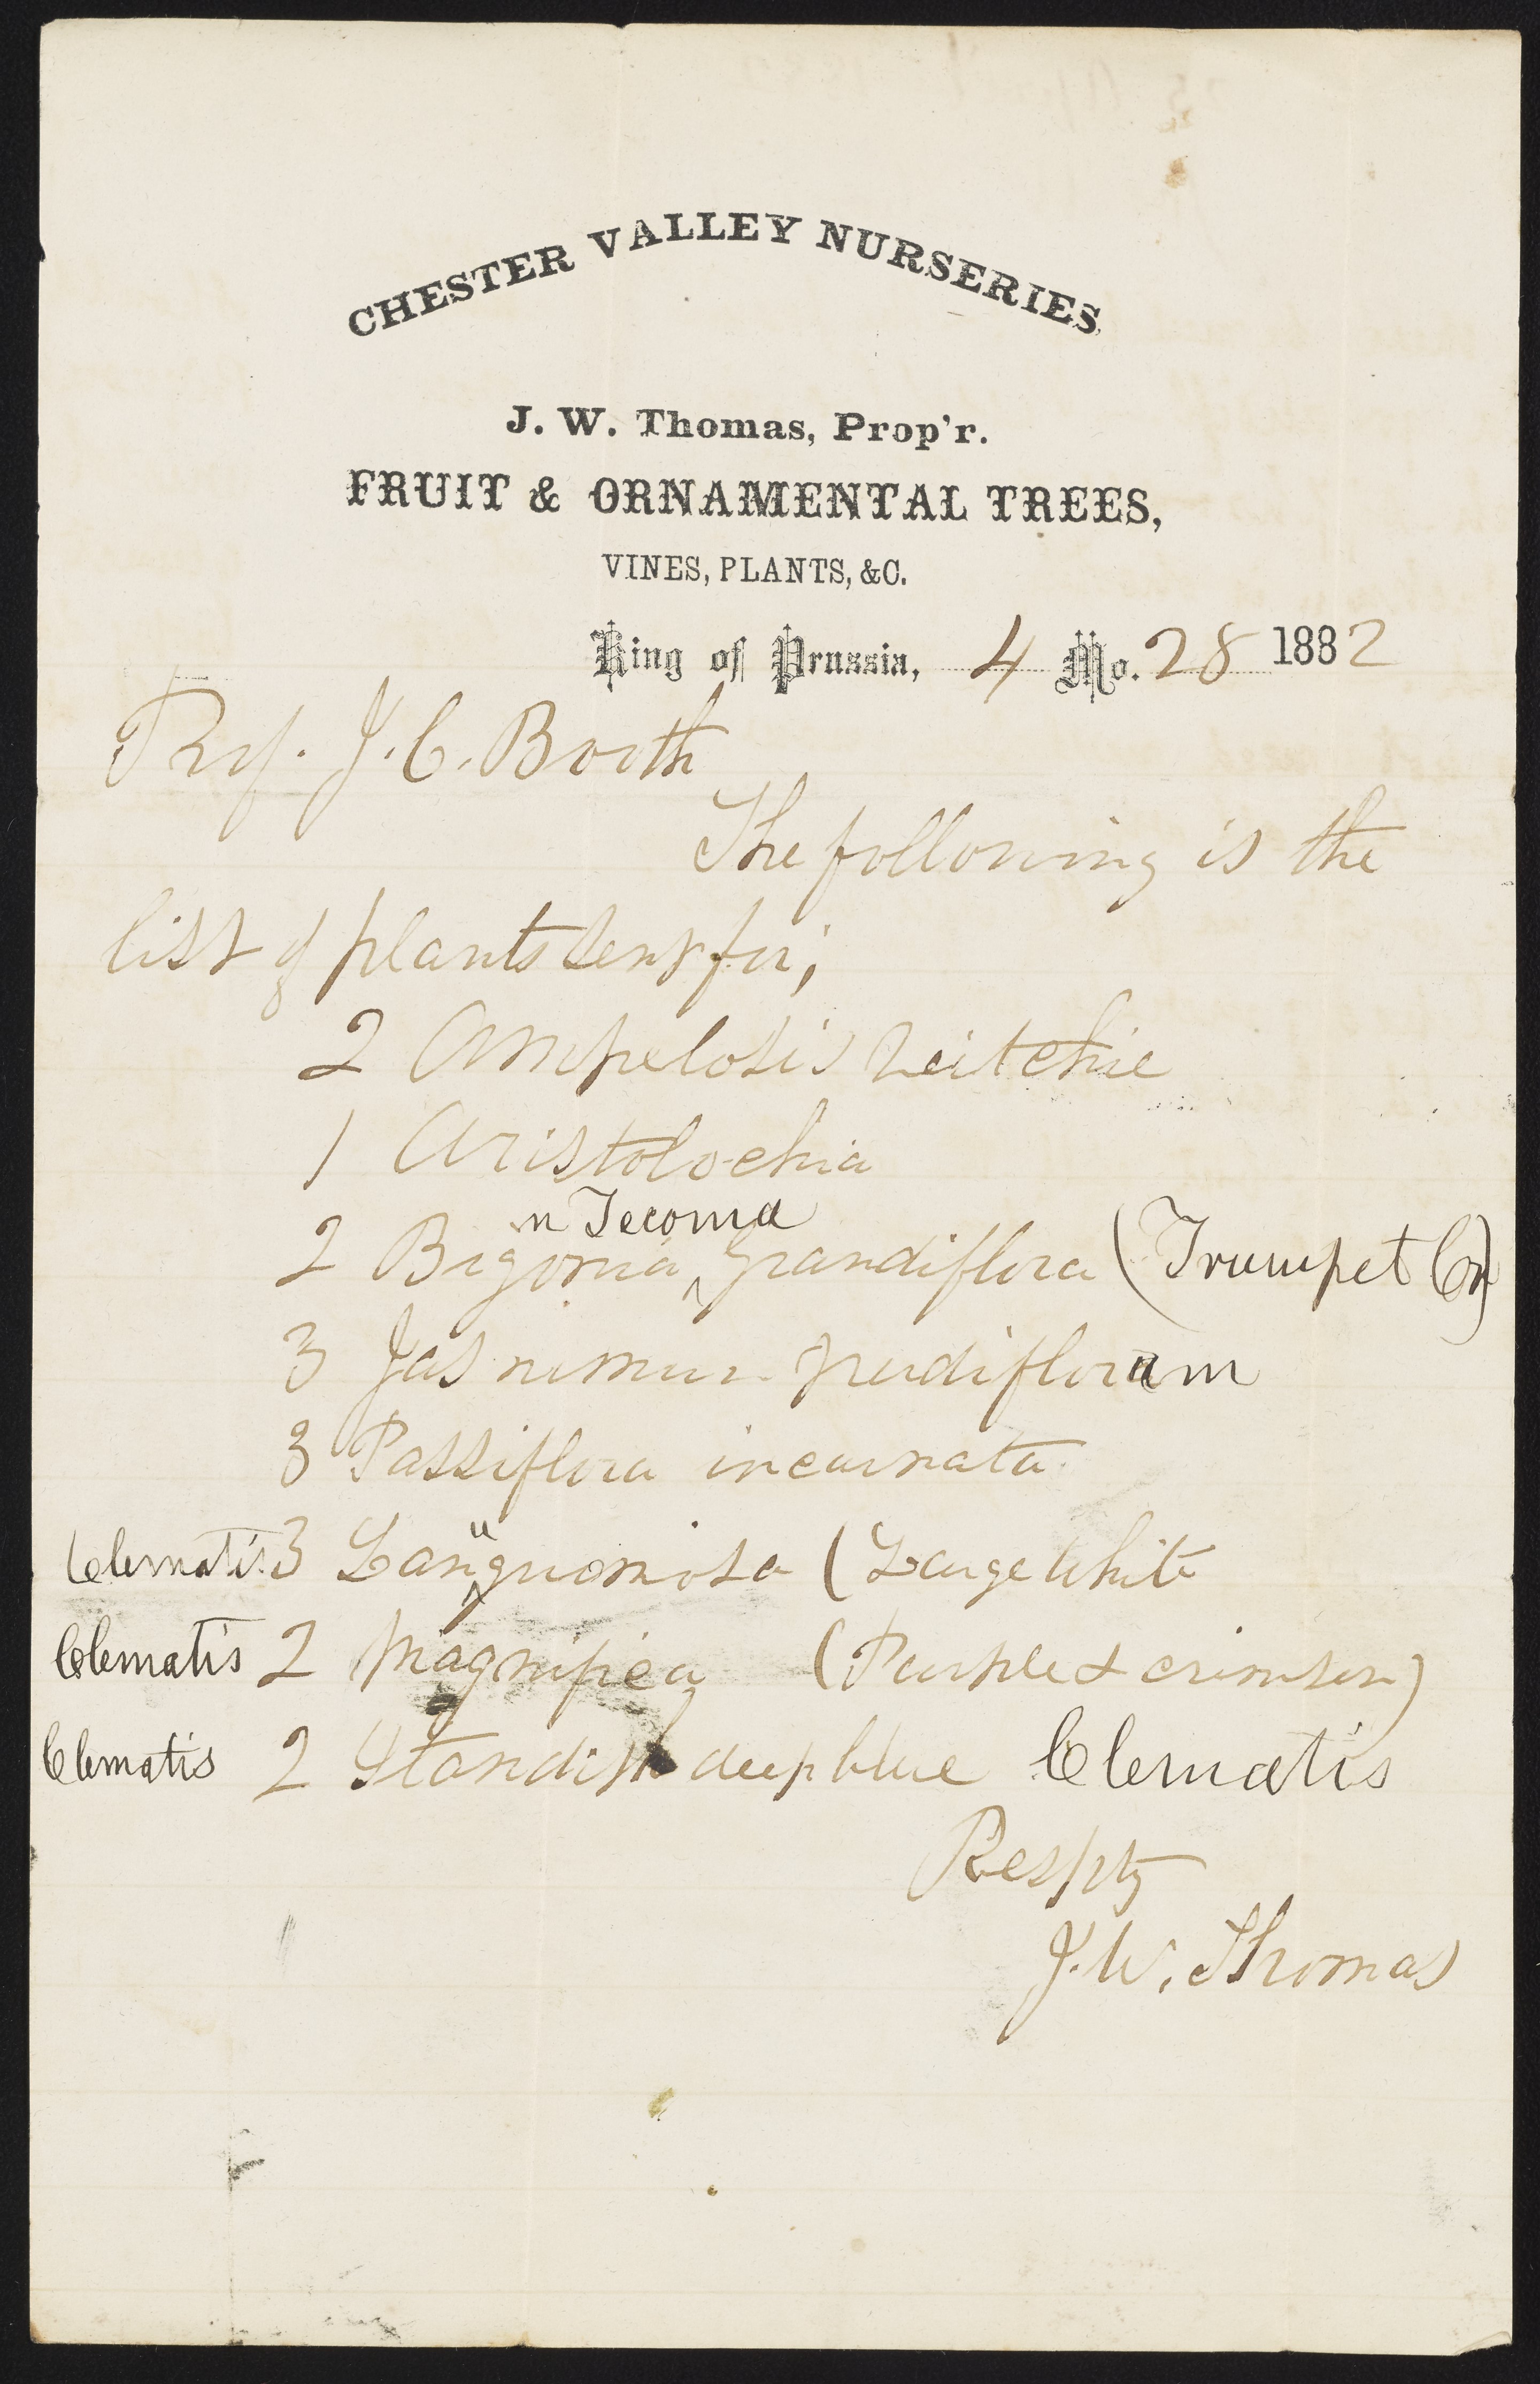 CHESTER VALLEY NURSERIES
J. W. Thomas, Prop'r.
FRUIT & ORNAMENTAL TREES,
VINES, PLANTS, &C.
King of Prussia, 4 Mo. 28 1882
Prof. J. C. Booth
The following is the
list of plants sent for;
2 Ampelosis Veitchie
1 Aristolochia
or Tecoma
2 Bigonia ^ grandiflora (Trumpet Cr)
3 Jasminum nudifloram
3 Passiflora incarnata
Clematis 3 Lanuguonosa (Large White
Clematis 2 Magnifica (Purple & crimson)
Clematis 2 Standish deep blue Clematis
Respty
J. W. Thomas